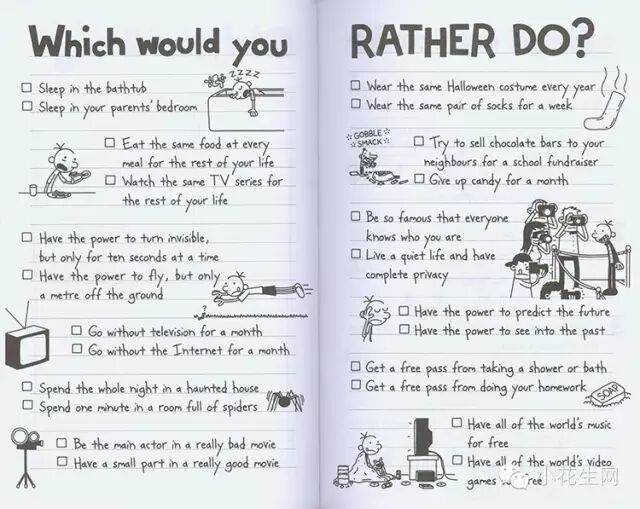 Which would you
Sleep in the bathtub
Sleep in your parents' bedroom
zzzz
Eat the same food at every
meal for the rest of your life
Watch the same TV series for
the rest of your life
Have the power to turn invisible,
but only for ten seconds at a time
Have the power to fly, but only
a metre off the ground
Go without television for a month
Go without the Internet for a month
Spend the whole night in a haunted house
Spend one minute in a room full of spiders
Be the main actor in a really bad movie
Have a small part in a really good movie
RATHER DO?
Wear the same Halloween costume every year
Wear the same pair of socks for a week
GOBBLE
SMACK
Try to sell chocolate bars to your
neighbours for a school fundraiser
Give up candy for a month
Be so famous that everyone
knows who you are
Live a quiet life and have
complete privacy
Have the power to predict the future
Have the power to see into the past
Get a free pass from taking a shower or bath
Get a free pass from doing your homework
SOAP
Have all of the world's music
for free
Have all of the world's video
games
小花生网